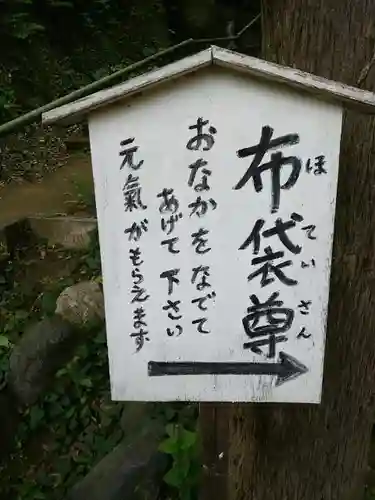 布袋尊
ほていさん
おなかをなでて
あげて下さい
元氣がもらえます